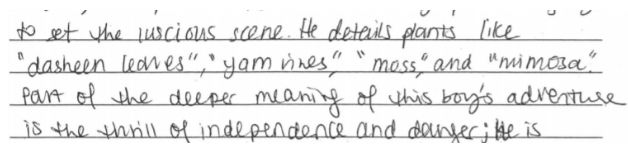 to set the luscious scene. He details plants like
"dasheen leaves", "yam vines", "moss", and "mimosa".
Part of the deeper meaning of this boy's adventure
is the thrill of independence and danger; He is